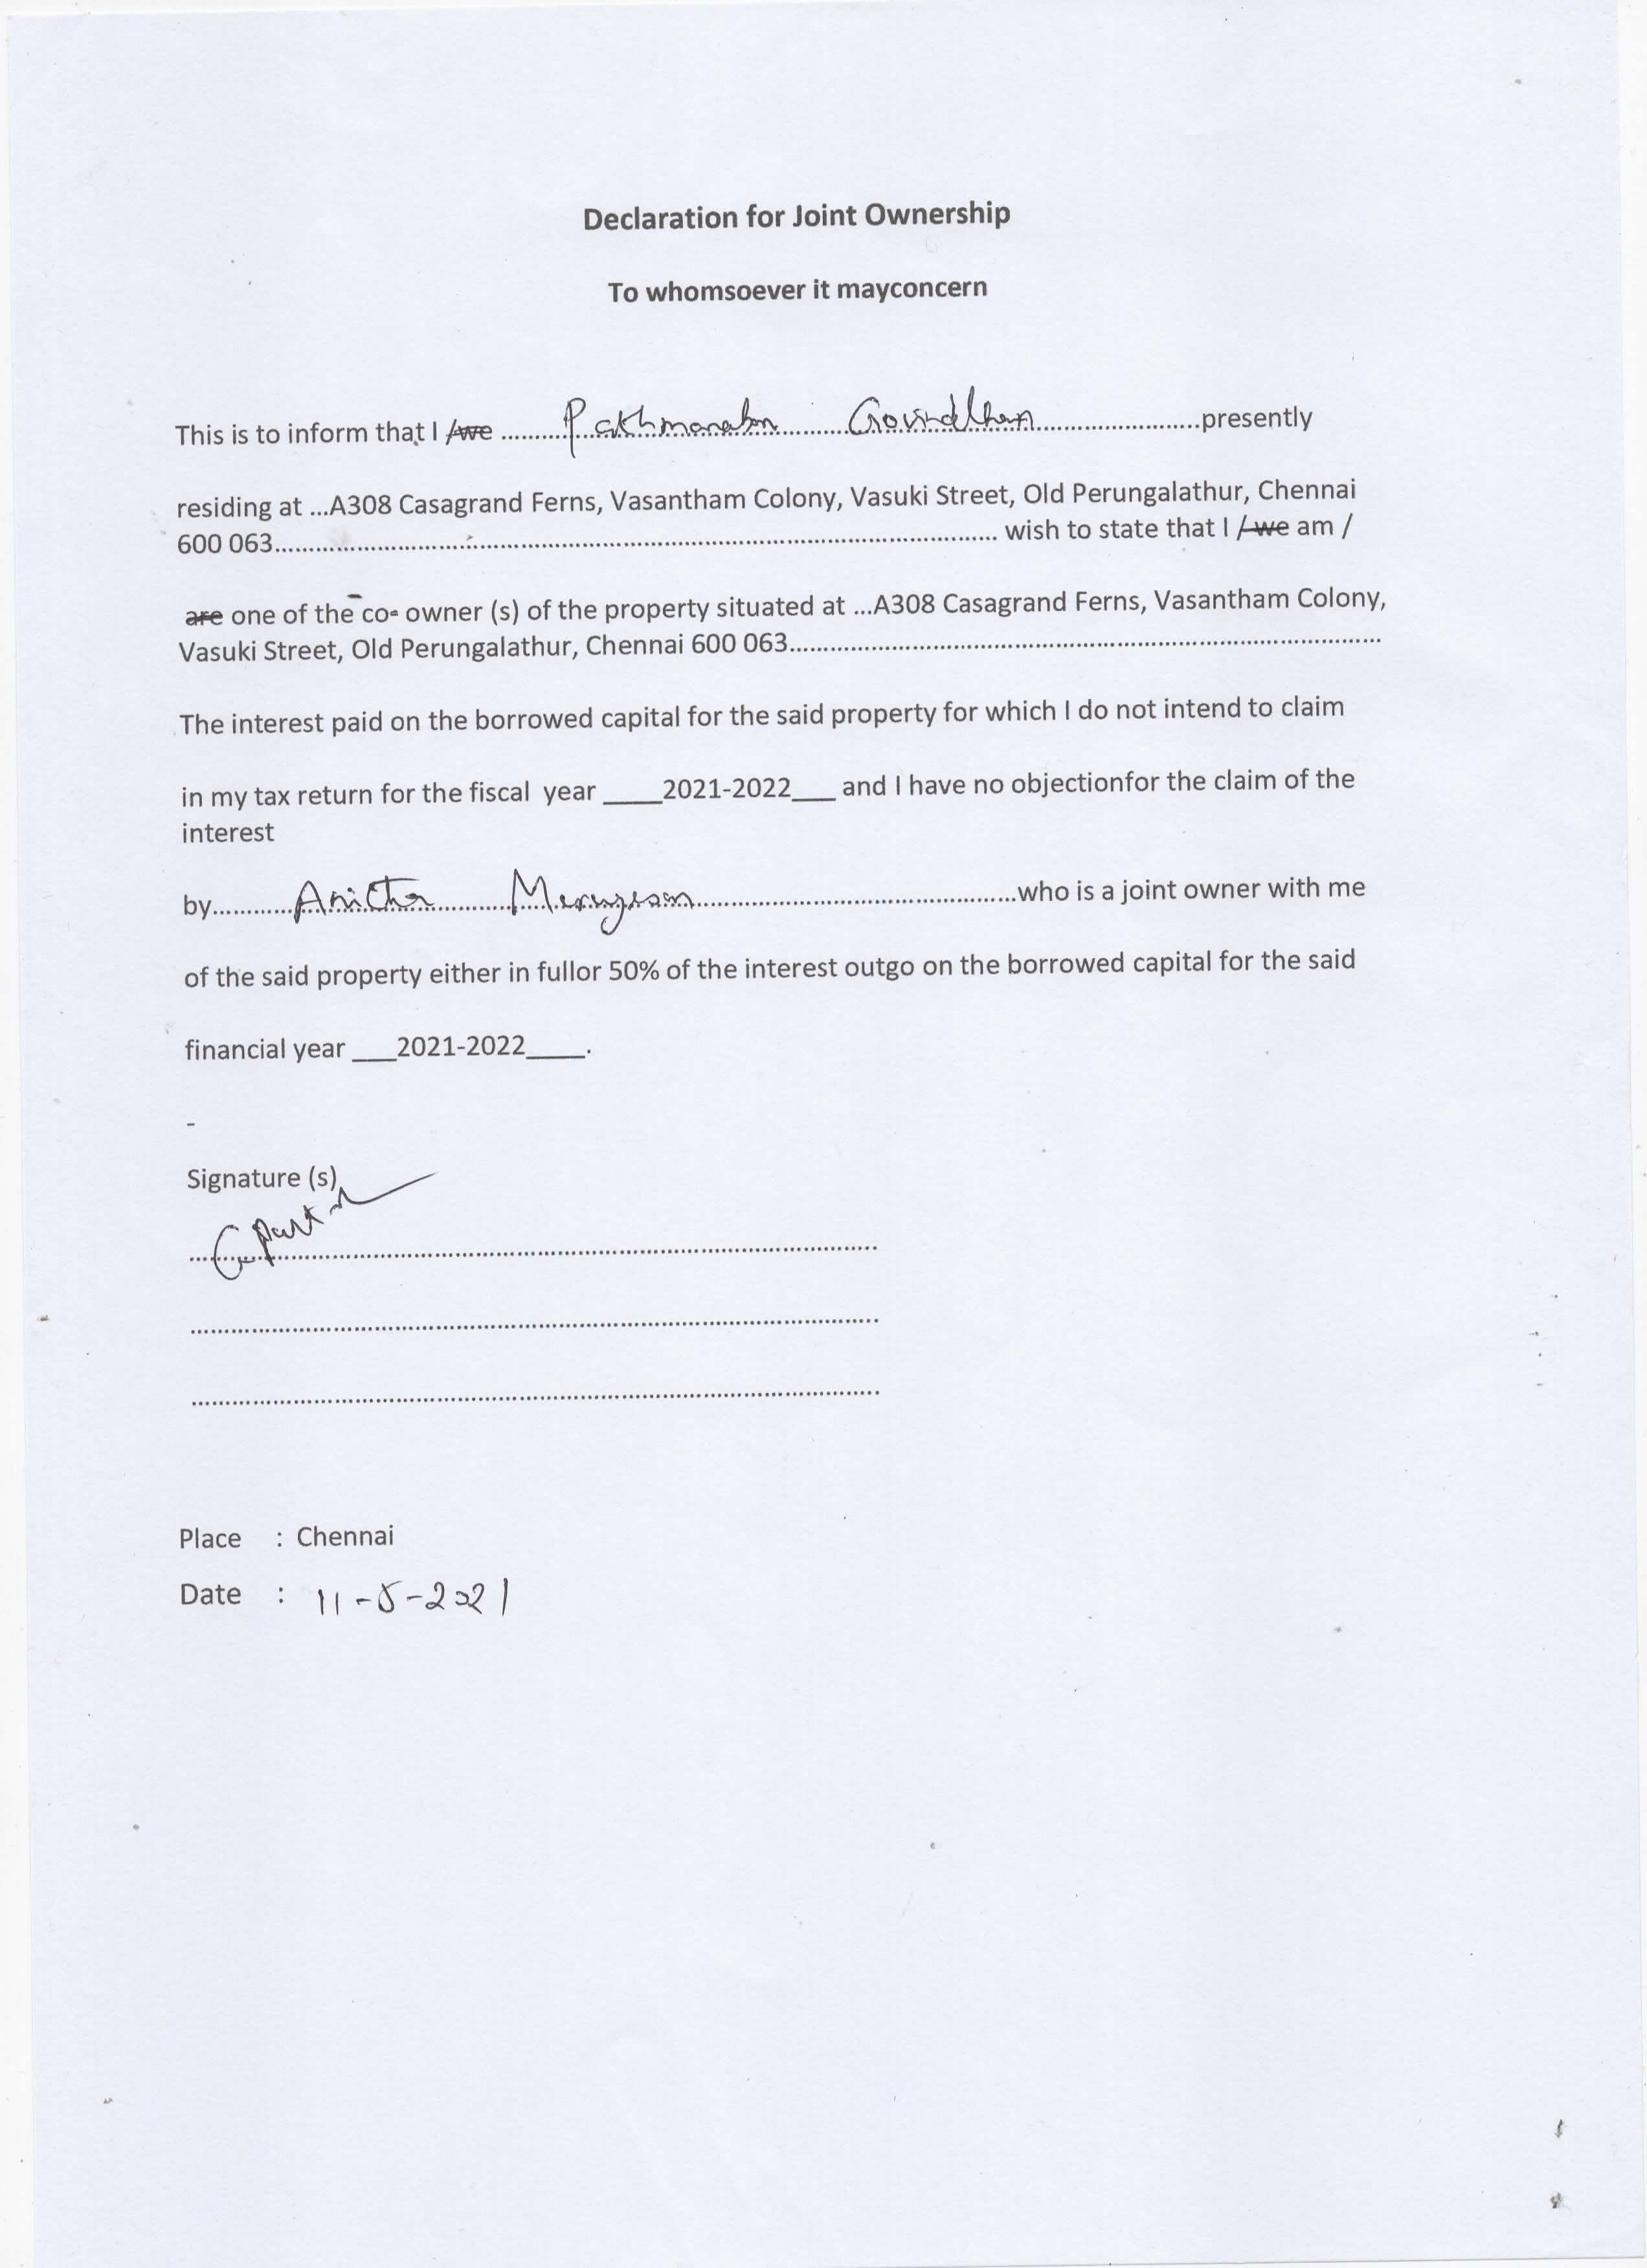 Declaration for Joint Ownership
To whomsoever it mayconcern
This is to inform that I /we ..........Pathmanabn Govindhan..........presently
residing at ...A308 Casagrand Ferns, Vasantham Colony, Vasuki Street, Old Perungalathur, Chennai
600 063.......... wish to state that I /we am /
are one of the co- owner (s) of the property situated at ...A308 Casagrand Ferns, Vasantham Colony,
Vasuki Street, Old Perungalathur, Chennai 600 063..........
The interest paid on the borrowed capital for the said property for which I do not intend to claim
in my tax return for the fiscal year ____2021-2022___ and I have no objectionfor the claim of the
interest
by..........Anitha..........who is a joint owner with me
of the said property either in fullor 50% of the interest outgo on the borrowed capital for the said
financial year ___2021-2022____.
-
Signature (s)
Place : Chennai
Date : 11-5-2021